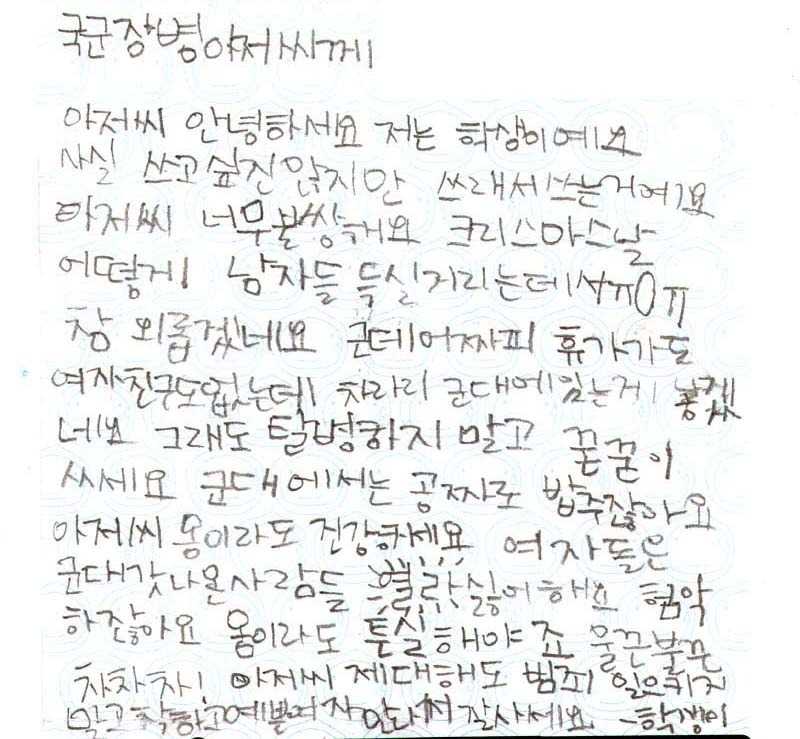 국군장병아저씨께
아저씨 안녕하세요 저는 학생이에요
사실 쓰고 싶진 않지만 쓰래서쓰는거에요
아저씨 너무불쌍해요 크리스마스날
어떻게 남자들 득실거리는데서ㅠ0ㅠ
참 외롭겠네요 군데어짜피 휴가가도
여자친구도없는데 차라리 군대에있는게 낳겠
네요 그래도 탈병하지 말고 꾿꾿이
싸세요 군대에서는 공짜로 밥주잖아요
아저씨 몸이라도 건강하세요 여자들은
군대갓나온사람들 열라 싫어해요 험악
하잖아요 몸이라도 튼실해야죠 울끈불끈
차차차! 아저씨 제대해도 범죄 일으키지
말고 착하고예쁜여자만나서 잘사세요 -학생이